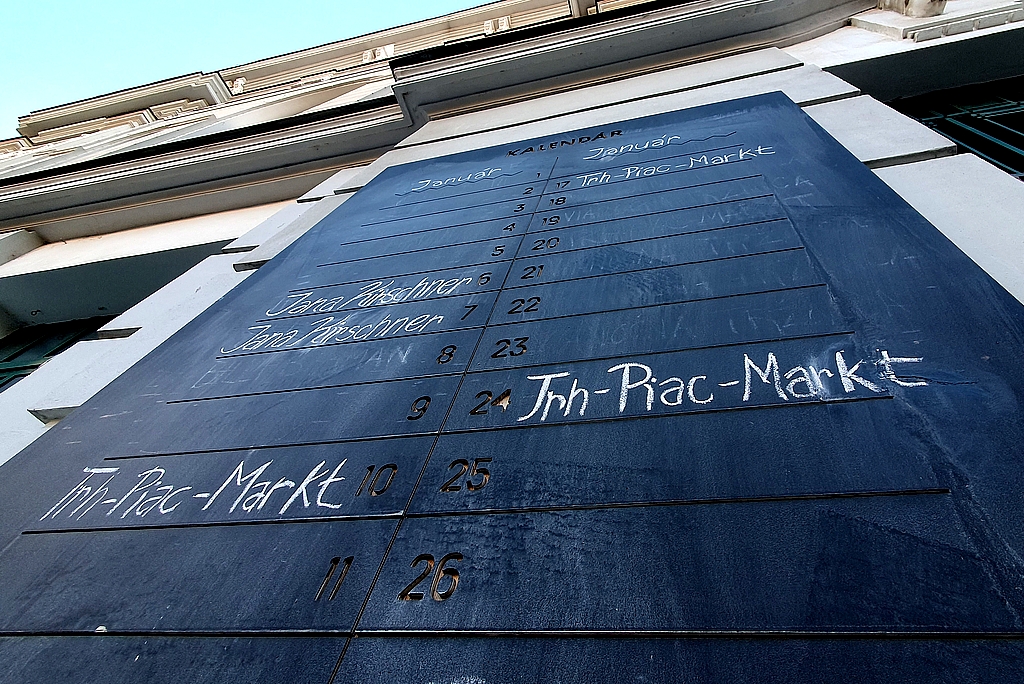 KALENDÁR
Január
Január
1
17 Trh-Piac-Markt
2
18
3
19
4
20
5
21
Jana Párschner 6
22
Jana Párschner 7
23
8
24 Trh-Piac-Markt
9
25
Trh-Piac-Markt 10
26
11